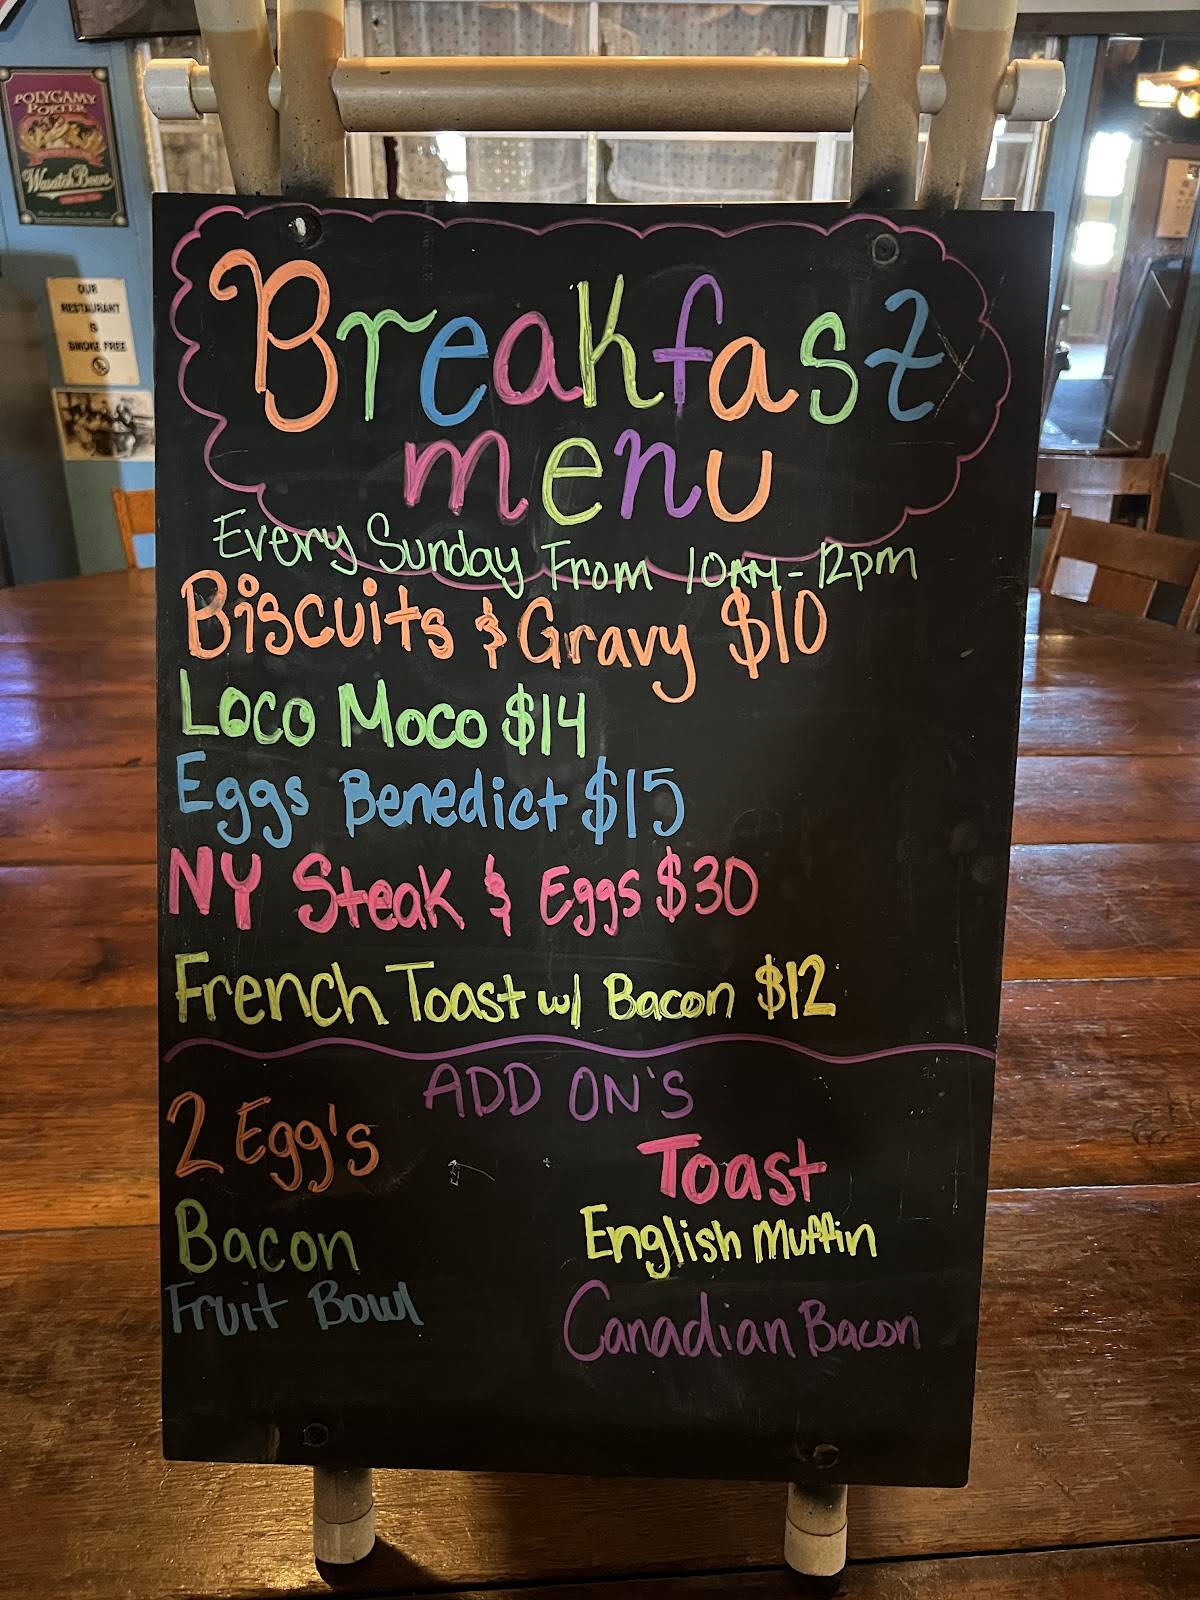 POLYGAMY
PORTER
Wasatch Beers
OUR
RESTAURANT
IS
SMOKE FREE
Breakfast
menu
Every Sunday From 10AM - 12pm
Biscuits & Gravy $10
Loco Moco $14
Eggs Benedict $15
NY Steak & Eggs $30
French Toast w/ Bacon $12
ADD ON'S
2 Egg's
Bacon
Fruit Bowl
Toast
English Muffin
Canadian Bacon